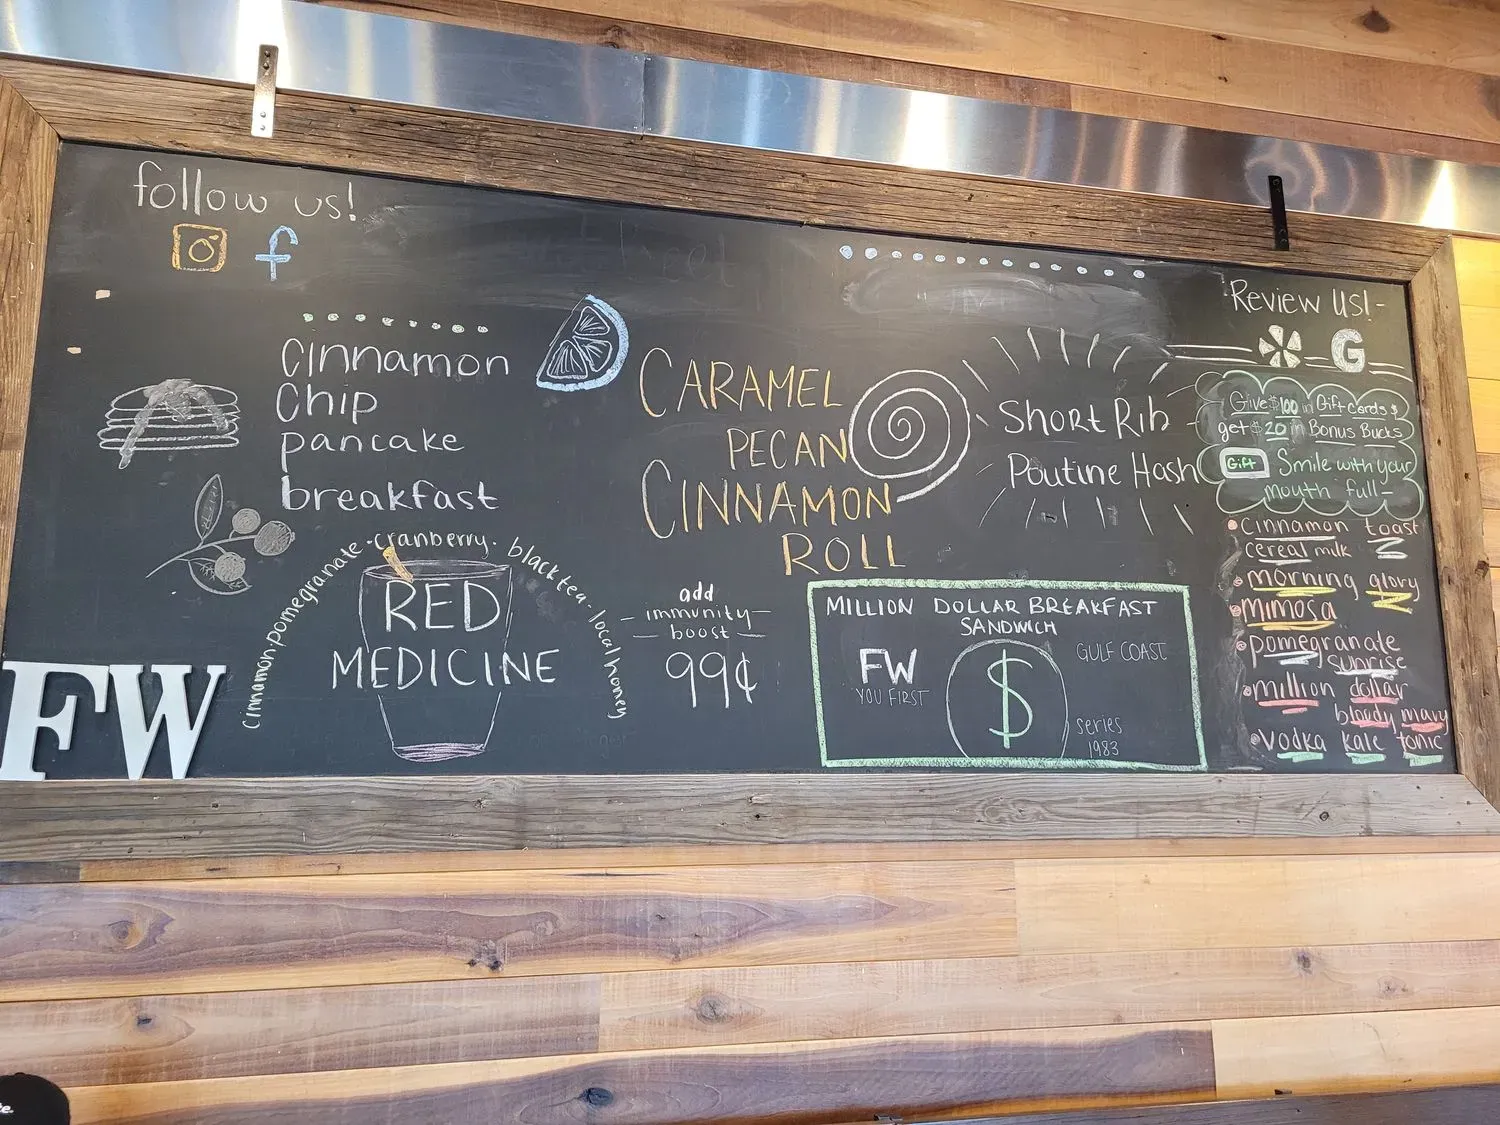 follow us!
f
cinnamon
chip
pancake
breakfast
cinnamon·pomegranate·cranberry·black tea·local honey
RED
MEDICINE
FW
add
immunity
boost
99¢
CARAMEL
PECAN
CINNAMON
ROLL
Short Rib
Poutine Hash
MILLION DOLLAR BREAKFAST
SANDWICH
FW
YOU FIRST
$
GULF COAST
series
1983
Review Us!-
G
Give $100 in Gift cards &
get $20 in Bonus Bucks
Gift Smile with your
mouth full-
cinnamon toast
cereal milk
morning glory
mimosa
pomegranate
sunrise
million dollar
bloody mary
vodka kale tonic